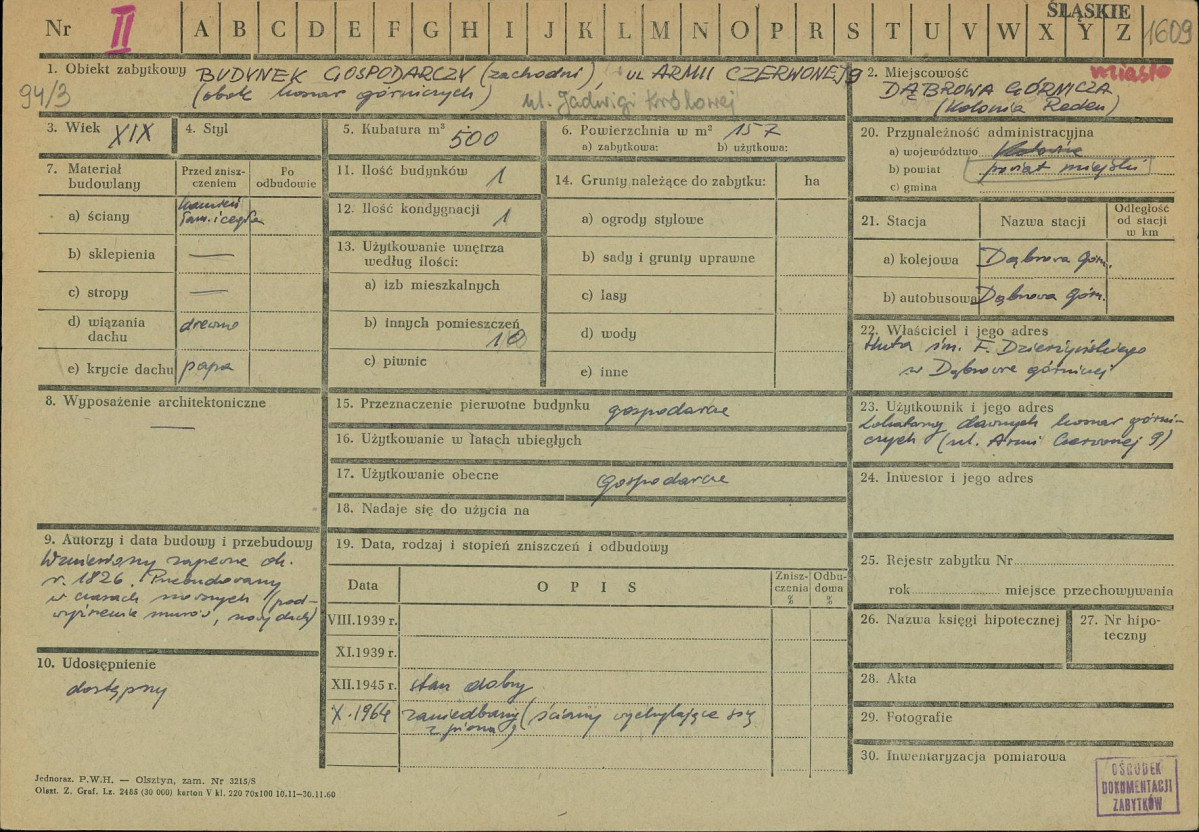 Nr II A B C D E F G H I J K L M N O P R S T U V W X Y Z ŚLĄSKIE 1609
1. Obiekt zabytkowy BUDYNEK GOSPODARCZY (zachodni), ul ARMII CZERWONEJ 9
94/3 (obok komar górniczych) ul. Jadwigi Królowej
2. Miejscowość miasto
DĄBROWA GÓRNICZA
(Kolonia Reden)
3. Wiek XIX
4. Styl
5. Kubatura m³ 500
6. Powierzchnia w m² 157
a) zabytkowa: b) użytkowa:
7. Materiał budowlany
Przed zniszczeniem
Po odbudowie
a) ściany kamień łam. i cegła
b) sklepienia —
c) stropy —
d) wiązania dachu drewno
e) krycie dachu papa
8. Wyposażenie architektoniczne
—
9. Autorzy i data budowy i przebudowy
Wzniesiony zapewne ok.
r. 1826. Przebudowany
w czasach nowszych (pod-
wyższenie murów, nowy dach)
10. Udostępnienie
dostępny
11. Ilość budynków 1
12. Ilość kondygnacji 1
13. Użytkowanie wnętrza
według ilości:
a) izb mieszkalnych
b) innych pomieszczeń 10
c) piwnic
14. Grunty należące do zabytku: ha
a) ogrody stylowe
b) sady i grunty uprawne
c) lasy
d) wody
e) inne
15. Przeznaczenie pierwotne budynku gospodarcze
16. Użytkowanie w latach ubiegłych
17. Użytkowanie obecne gospodarcze
18. Nadaje się do użycia na
19. Data, rodzaj i stopień zniszczeń i odbudowy
Data OPIS Zniszczenia % Odbudowa %
VIII.1939 r.
XI.1939 r.
XII.1945 r. stan dobry
X.1964 zaniedbany (ściany wychylające się
z pionu)
20. Przynależność administracyjna
a) województwo
b) powiat powiat miejski
c) gmina
21. Stacja Nazwa stacji Odległość od stacji w km
a) kolejowa Dąbrowa Górn.
b) autobusowa Dąbrowa Górn.
22. Właściciel i jego adres
Huta im. F. Dzierżyńskiego
w Dąbrowie górniczej
23. Użytkownik i jego adres
Lokatorzy dawnych komar górni-
czych (ul. Armii Czerwonej 9)
24. Inwestor i jego adres
25. Rejestr zabytku Nr
rok miejsce przechowywania
26. Nazwa księgi hipotecznej
27. Nr hipoteczny
28. Akta
29. Fotografie
30. Inwentaryzacja pomiarowa
OŚRODEK
DOKUMENTACJI
ZABYTKÓW
Jednoraz. P.W.H. — Olsztyn, zam. Nr 3215/S
Olszt. Z. Graf. Lz. 2485 (30 000) karton V kl. 220 70x100 10.11—30.11.60